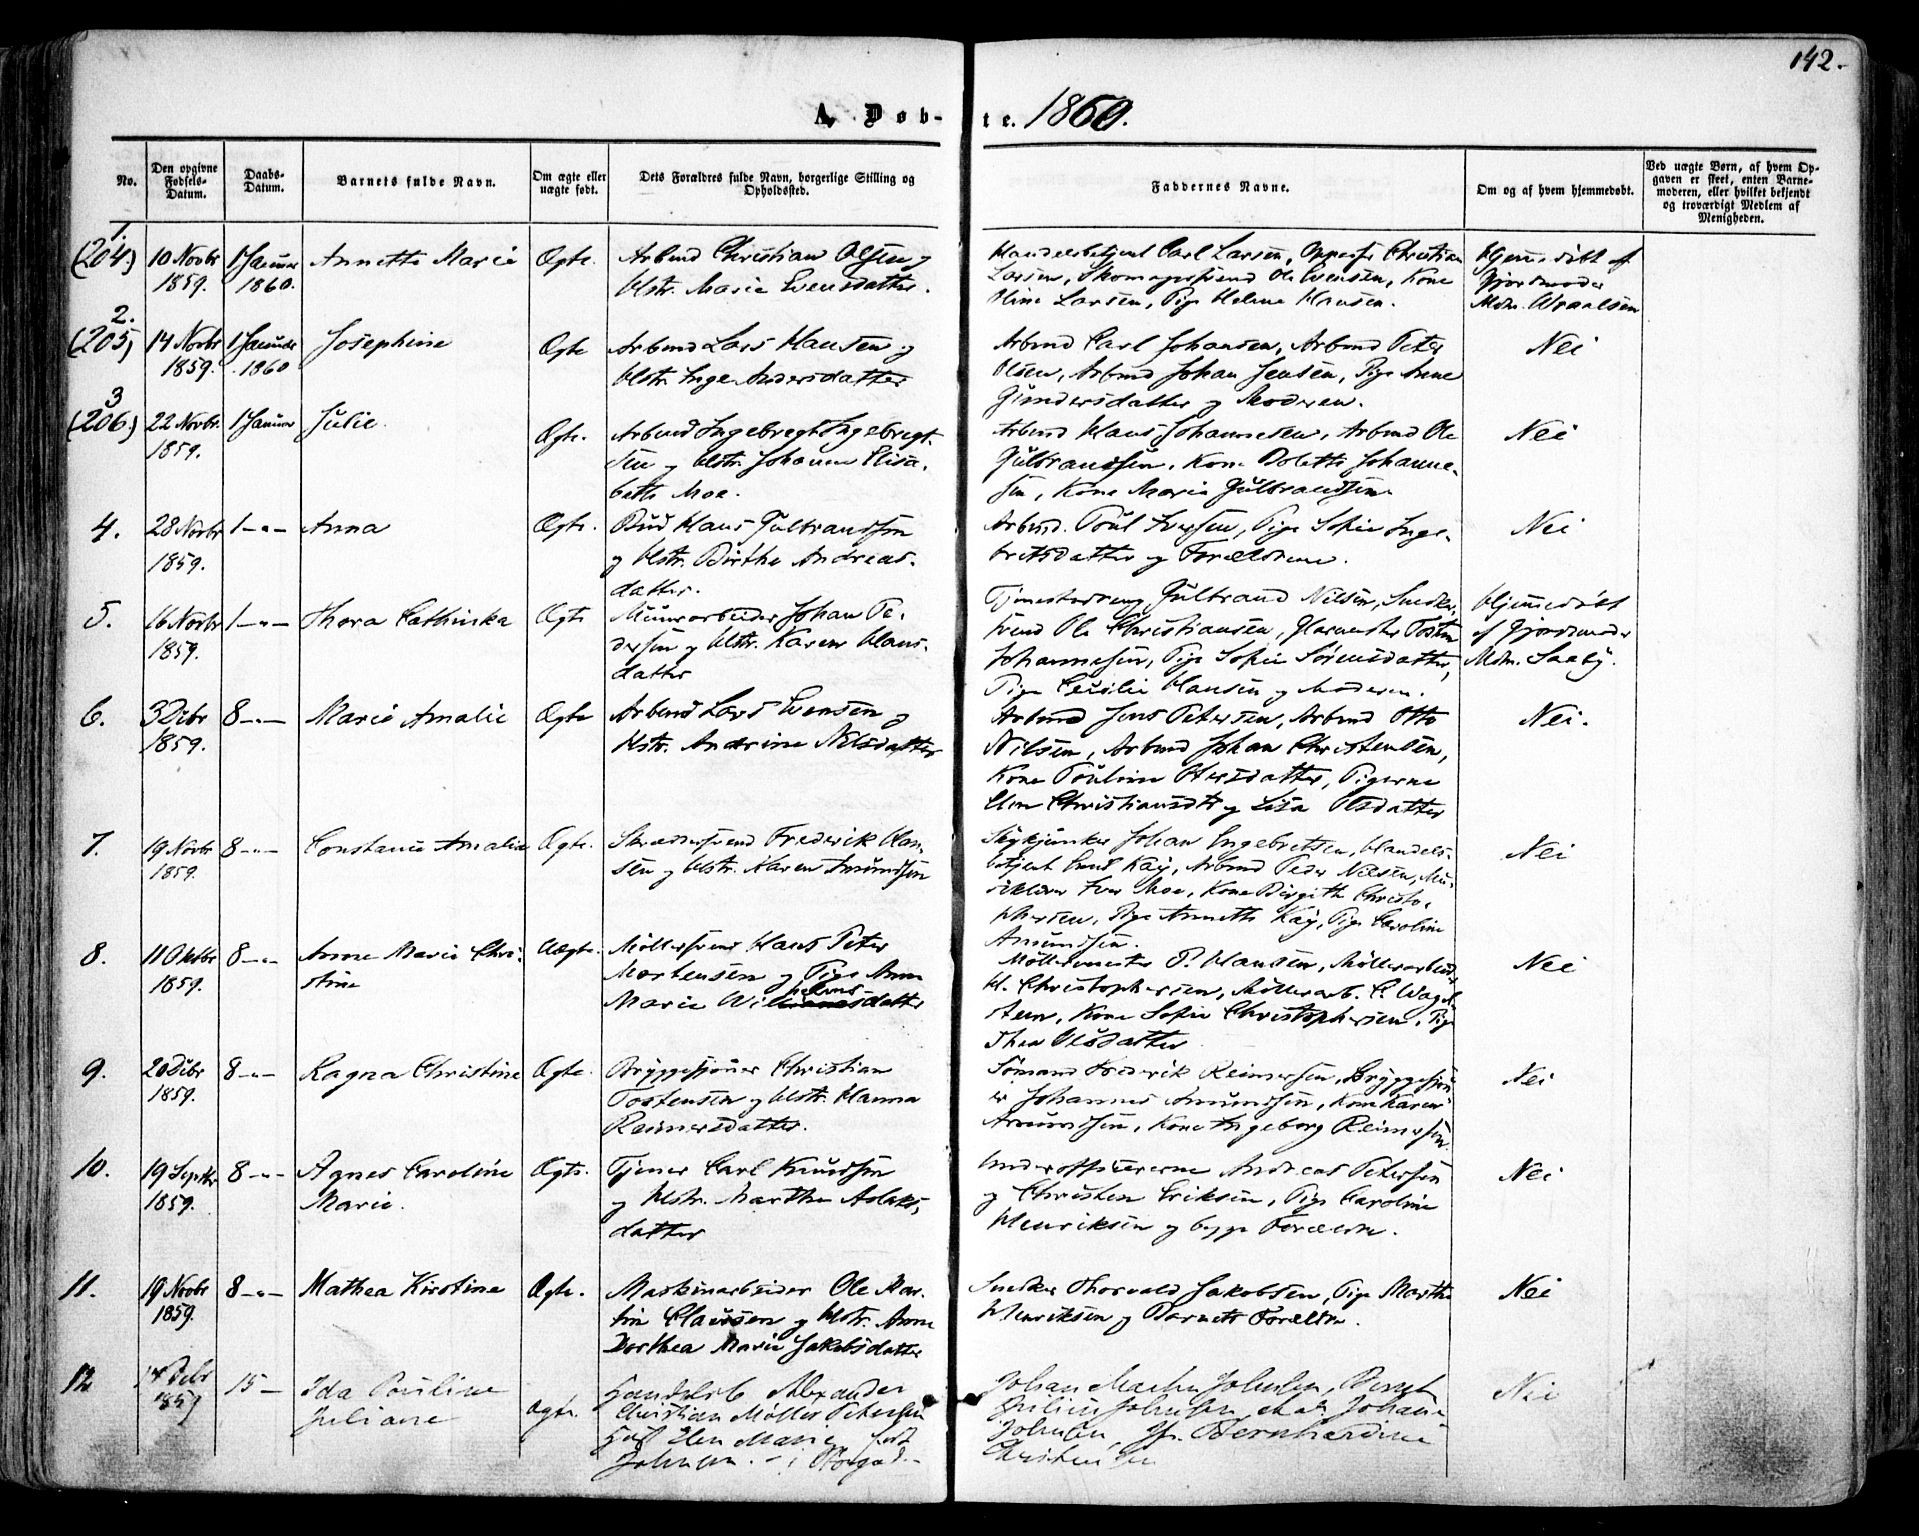 142.
A. Døb- te. 1860.
No.
Den opgivne Fødsels-Datum.
Daabs-Datum.
Barnets fulde Navn.
Om ægte eller uægte født.
Dets Forældres fulde Navn, borgerlige Stilling og Opholdssted.
Faddernes Navne.
Om og af hvem hjemmedøbt.
Ved uægte Børn, af hvem Opgaven er skeet, enten Barnemoderen, eller hvilket bekjendt og troværdigt Medlem af Menigheden.
1. (204) 10 Novbr 1859. 1 Januar 1860. Annette Marie Ægte.
Arbmd Christian Olsen og
Hstr. Marie Evensdatter.
Handelsbetjent Carl Larsen, Christian
Larsen, Ole Evensen, Kone
Oline Larsen, Pige Helene Hansen.
Hjemmedøbt af
Gjordmoder
Mdm. Wraalsen
2. (205) 14 Novbr 1859. 1 Januar 1860 Josephine Ægte
Arbmd Lars Hansen og
Hstr. Inge Andersdatter
Arbmd Carl Johansen, Arbmd Peter
Olsen, Arbmd Johan Jensen, Pige Anne
Gundersdatter og Moderen.
Nei
3 (206) 22 Novbr. 1859. 1 Januar Julie Ægte.
Arbmd Ingebregt Ingebregt-
sen og Hstr. Johanne Elisa-
beth Moe.
Arbmd Hans Johannesen, Arbmd Ole
Gulbrandsen, Kone Bolette Johanne-
sen, Kone Marie Gulbrandsen
Nei
4. 28 Novbr 1859. 1-"- Anna Ægte.
Bud Hans Gulbrandsen
og Hstr. Birthe Andreas-
datter.
Arbmd. Poul Iversen, Pige Sofie Inge-
britsdatter og Forældrene.
Nei
5. 16 Novbr 1859. 1-"- Thora Cathinka Ægte
Muurarbeider Johan Pe-
dersen og Hstr. Karen Hans-
datter
Gulbrand Nilsen, Snedker-
svend Ole Christiansen,
Johannesen, Pige Sofie Sørensdatter,
Pige Cecilie Hansen og Moderen.
Hjemmedøbt
af Gjordmoder
Mdm. Saaby.
6. 3 Dcbr 1859. 8-"- Marie Amalie Ægte
Arbmd Lars Evensen og
Hstr. Andrine Nilsdatter
Arbmd Jens Petersen, Arbmd Otto
Nilsen, Arbmd Johan Christensen,
Kone Pouline Petersdatter, Pigerne
Elen Christiansdtr og Lisa Olsdatter
Nei.
7. 19 Novbr 1859. 8-"- Constance Amalia Ægte.
Skræddersvend Frederik Han-
sen og Hstr. Karen Amundsen
Johan Ingebretsen, Handels-
betjent Emil Kay, Arbmd Peder Nilsen, Mu-
Iver Moe, Kone Birgith Christo-
phersen, Pige Annette Kay, Pige Caroline
Amundsen.
Nei
8. 11 Oktbr 1859. 8-"- Anne Marie Chri-
stine
Uægte.
Møllersvend Hans Peter
Mortensen og Pige Anne
Marie Wilhelmsdatter
Møllermester P. Hansen, Møllerarbeider
H. Christophersen, Møllerarb. C. Wagel-
steen, Kone Sofie Christophersen, Pige
Thea Olsdatter
Nei
9. 20 Dcbr 1859. 8-"- Ragna Christine Ægte.
Bryggesjouer Christian
Tostensen og Hstr. Hanna
Reimersdatter.
Sømand Frederik Reimersen, Bryggesjou-
er Johannes Amundsen, Kone Karen
Amundsen, Kone Ingeborg Reimersen
Nei
10. 19 Septbr 1859. 8-"- Agnes Caroline
Marie.
Ægte.
Tjener Carl Knudsen
og Hstr. Marthe Aslaks-
datter
Underofficererne Andreas Petersen
og Christen Eriksen, Pige Caroline
Henriksen og begge Forældre.
Nei
11. 19 Novbr 1859. 8-"- Mathea Kirstine Ægte.
Maskinarbeider Ole Mar-
tin Claussen og Hstr. Anne
Dorthea Marie Jakobsdatter
Snedker Thorvald Jakobsen, Pige Marthe
Henriksen og Barnets Forældre.
Nei
12 14 Dcbr 1859 15 - Ida Pauline
Juliane
Ægte.
Alexander
Christian Møller Petersen
Elen Marie født
Johnsen.
Johan Martin Johnsen, Bernt
Julius Johnsen, Johanne
Johnsen, Bernhardine
Christensen
Nei